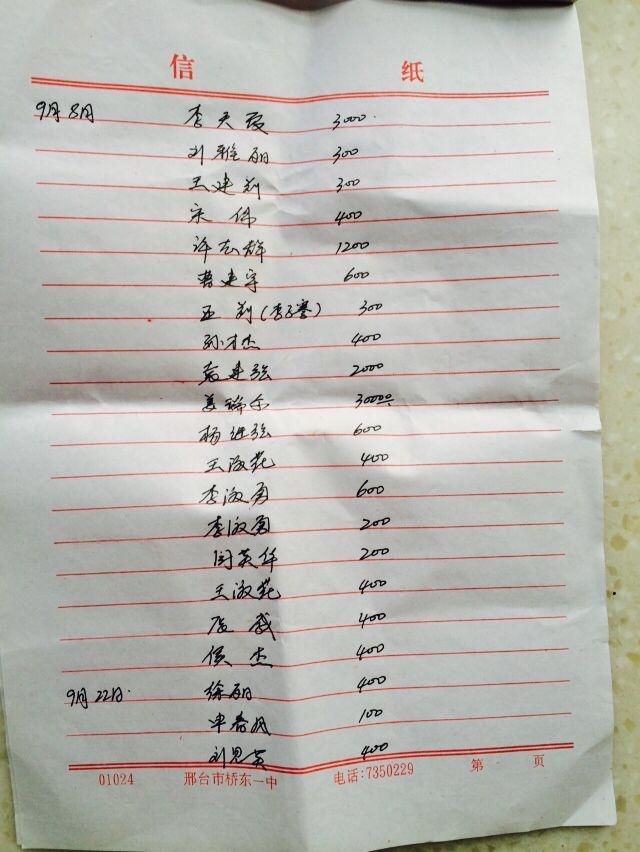 信 纸
9月8日 李天 3000
刘雅丽 300
王建莉 300
宋伟 400
许志群 1200
建宇 600
王莉(李子誉) 300
孙才杰 400
建强 2000
姜 3000
杨进强 600
王淑花 400
李淑勇 600
李淑勇 200
闫英华 200
王淑花 400
400
侯杰 400
9月22日 徐丽 400
申春月 100
刘思英 400
01024 邢台市桥东一中 电话:7350229 第 页